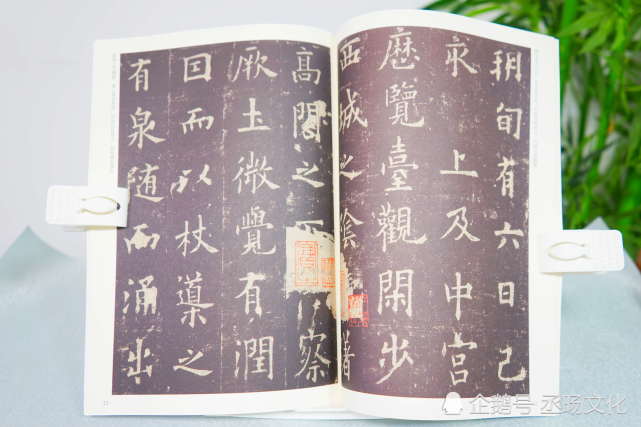 朔旬有六日己
亥上及中宮
歷覽臺觀閑步
西城之陰
高閣之下俯察
厥土微覺有潤
因而以杖導之
有泉隨而涌出
企鹅号 丞旸文化